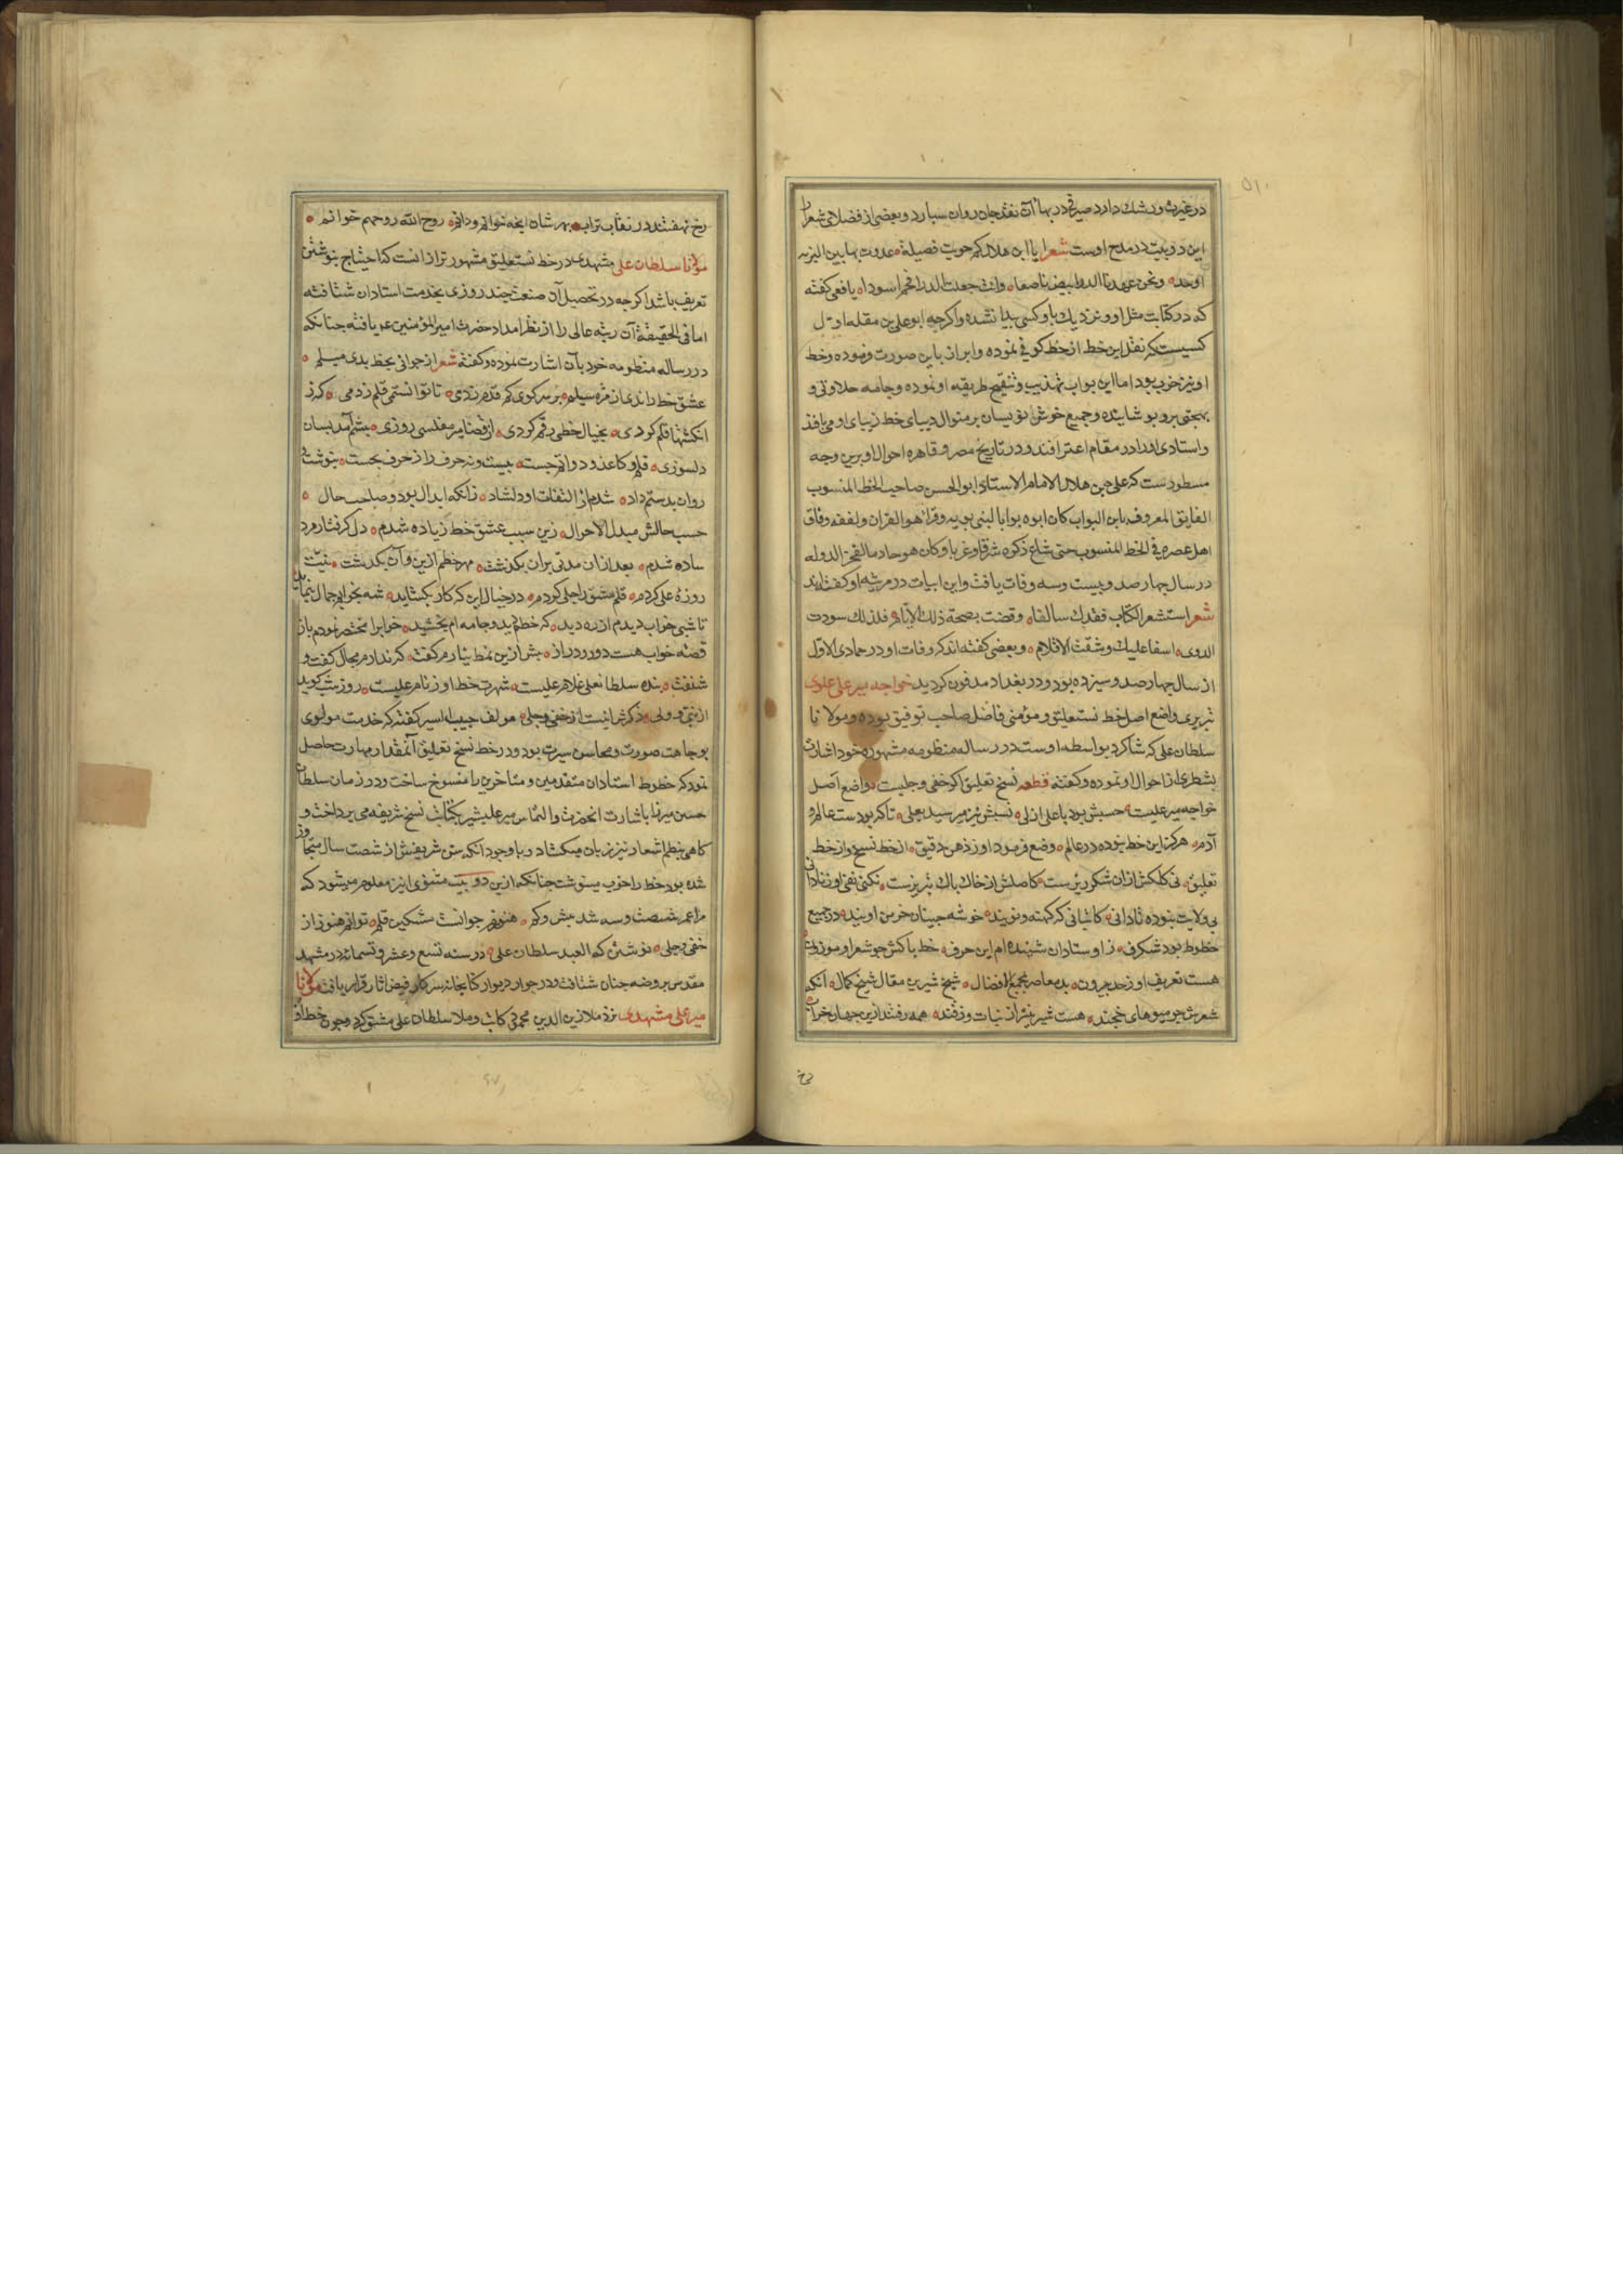 در غیرت و رشک دارد صیرفی در بهاء آن نقد جان روان سپارد و بعضی از فضلای شعرا
این دو بیت در مدح اوست شعر ایا ابن هلال کم حویت فضیلة
اوحد ونحن عهدنا الدر ابیض ناصعا وانت جعلت الدر افحم اسودا یافعی کفته
که در کتابت مثل او و نزدیك باو کسی پیدا نشده و اکرچه ابو علی بن مقله اول
کسیست که نقل این خط از خط کوفی نموده و ابراز باین صورت فرموده و خط
او نیز خوب بود اما ابن بواب تهذیب و تنقیح طریقه او نموده و جامه حلاوتی و
بهجتی برو پوشانیده و جمیع خوش نویسان بر منوال دیبای خط زیبای او می بافند
و استادی او را در مقام اعترافند و در تاریخ مصر و قاهره احوال او برین وجه
مسطورست که علی بن هلال الامام الاستاذ ابو الحسن صاحب الخط المنسوب
الفایق المعروف بابن البواب کان ابوه بوابا لبنی بویه وقرا هو القران و لفقه وفاق
اهل عصره فی الخط المنسوب حتی شاع ذکره شرقا و غربا وکان هو خادما لفخر الدوله
در سال چهار صد و بیست و سه وفات یافت و این ابیات در مرثیه او کفته اند
شعر استشعر الکتاب فقدك سالفا وقضت بصحة ذلك الایام فلذلك سودت
الدوی اسفا علیك وشقت الاقلام و بعضی کفته اند که وفات او در جمادی الاول
از سال چهار صد و سیزده بود و در بغداد مدفون کردید خواجه میر علی علوی
تبریزی واضع اصل خط نستعلیق و مؤمنی فاضل صاحب توفیق بوده و مولانا
سلطان علی که شاکرد بواسطه اوست در رساله منظومه مشهوره خود اشارت
بشطری از احوال او نموده و کفته قطعه نسخ تعلیق اکر خفی و جلیست واضع اصل
خواجه میر علیست حسبش بود با علی ازلی نسبش نیز میرسد بعلی تا که بودست عالم و
آدم هرکز این خط نبوده در عالم وضع فرمود او ز ذهن دقیق از خط نسخ و از خط
تعلیق نی کلکش ازان شکر ریزست کاصلش از خاك پاك تبریزست نکنی نفی او ز نادانی
بی ولایت نبوده تا دانی کاتبانی که کهنه و نویند خوشه چینان خرمن اویند در جمیع
خطوط بود شکرف ز اوستادان شنیده ام این حرف خط پاکش چو شعر او موزون
هست تعریف او ز حد بیرون بد معاصر بمجمع افضال شیخ شیرین مقال شیخ کمال انکه
شعرش چو میوهای خجند هست شیرین تر از نبات و ز قند همه رفتند ازین جهان خراب
رخ نهفتند در نقاب تراب بهر شان ایچه خوانم و دانم روح الله روحهم خوانم
مولانا سلطان علی مشهدی در خط نستعلیق مشهور تر از انست که احتیاج بنوشتن
تعریف باشد اکرچه در تحصیل آن صنعت چند روزی بخدمت استادان شتافته
اما فی الحقیقة آن رتبه عالی را از نظر امداد حضرت امیر المؤمنین ع یافته چنانکه
در رساله منظومه خود بآن اشارت نموده و کفته شعر از جوانی بخط بدی میلم
عشق خط راندی از مژه سیلم بر سر کوی کم قدم زدمی تا توانستمی قلم زدمی که ز
انکشتها قلم کردی بخیال خطی رقم کردی از قضا میر مفلسی روزی پیشم آمد بسان
دلسوزی قلم و کاغذ و دواتم جست بیست و نه حرف را ز حرف نخست بنوشت و
روان بدستم داد شدم از التفات او دلشاد زانکه ابدال بود و صاحب حال
حسب حالش مبدل الاحوال زین سبب عشق خط زیاده شدم دل کرفتار مرد
ساده شدم بعد ازان مدتی بران بکذشت مهر خطم ازین و آن بکذشت نیت
روزه علی کردم قلم مشق را جلی کردم در خیال این که کار بکشاید شه بخوابم جمال بنماید
تا شبی خواب دیدم از ره دید که خطم دید و جامه ام بخشید خواب را مختصر نمودم باز
قصه خواب هست دور و دراز بیش ازین نمط نیارم کفت که ندارم مجال کفت و
شنفت بنده سلطانعلی غلام علیست شهرت خط او ز نام علیست روز و شب کوید
از نبی و ولی ذکرش اینست از خفی و جلی مولف حبیب السیر کفته که خدمت مولوی
بوجاهت صورت و محاسن سیرت بود و در خط نسخ تعلیق آنمقدار مهارت حاصل
نمود که خطوط استادان متقدمین و متاخرین را منسوخ ساخت و در زمان سلطان
حسین میرزا باشارت انحضرت والتماس میر علیشیر بکتابت نسخ شریفه می پرداخت و
کاهی بنظم اشعار نیز زبان میکشاد و با وجود آنکه سن شریفش از شصت سال متجاوز
شده بود خط را خوب مینوشت چنانکه ازین دو بیت مثنوی اینز معلوم میشود که
مرا عمر شصت و سه شد بیش و کم هنوزم جوانست مشکین قلم توانم هنوز از
خفی و جلی نوشتن که العبد سلطان علی در سنه تسع و عشر و تسمائه در مشهد
مقدس بروضه جنان شتافت و در جوار دیوار کتابخانه سرکار فیض اثار قرار یافت مولانا
میر علی مشهدی نزد ملا زین الدین محمود کاتب و ملا سلطان علی مشق کرد و چون خط او